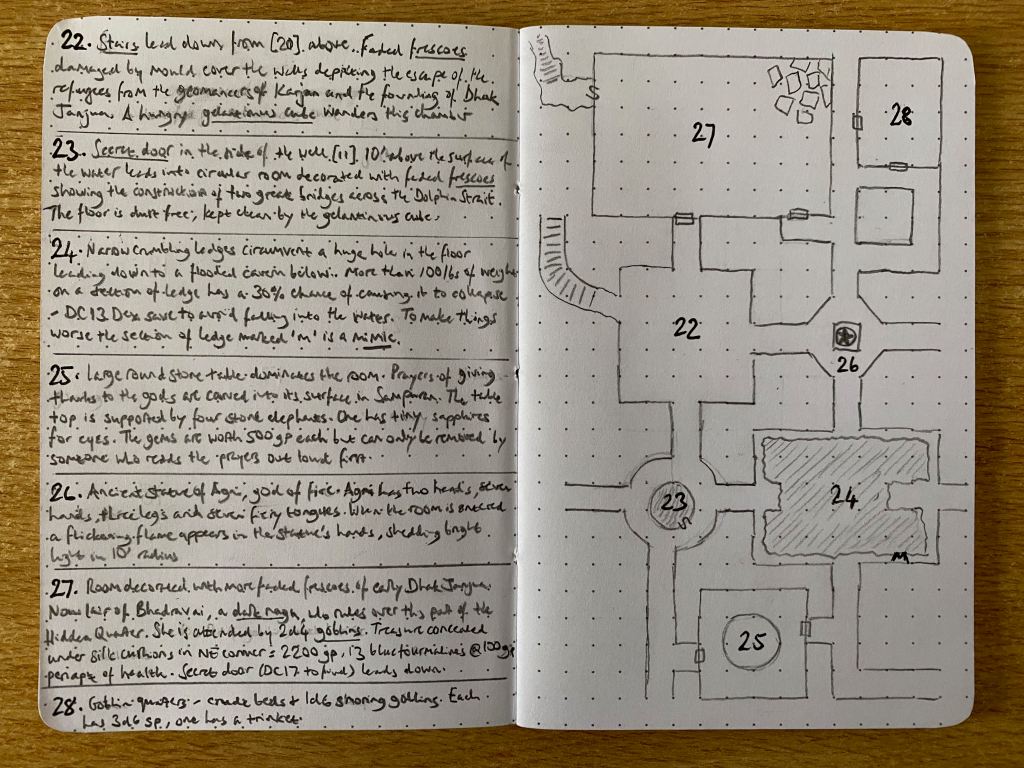 22. Stairs lead down from [20] above. Faded frescoes
damaged by mould cover the walls depicting the escape of the
refugees from the geomancers of Karjan and the founding of Dhak
Janjua. A hungry gelatinous cube wanders this chamber
23. Secret door in the side of the well [11] 10' above the surface of
the water leads into circular room decorated with faded frescoes
showing the construction of two great bridges across the Dolphin Strait.
The floor is dust free, kept clean by the gelantinous cube.
24. Narrow crumbling ledges circumvent a huge hole in the floor
leading down to a flooded cavern below. More than 100lbs of weight
on a section of ledge has a 30% chance of causing it to collapse
- DC13 Dex save to avoid falling into the water. To make things
worse the section of ledge marked 'm' is a mimic.
25. Large round stone table dominates the room. Prayers of giving
thanks to the gods are carved into its surface in The table
top is supported by four stone elephants. One has tiny sapphires
for eyes. The gems are worth 500gp each but can only be removed by
someone who reads the prayers out loud first.
26. Ancient statue of Agni, god of fire. Agni has two heads, seven
hands, three legs and seven fiery tongues. When the room is entered
a flickering flame appears in the statue's hands, shedding bright
light in 10' radius
27. Room decorated with more faded frescoes of early Dhak Janjua.
Now lair of Bhadravai, a dark naga, who rules over this part of the
Hidden Quarter. She is attended by 2d4 goblins. Treasure concealed
under silk cushions in NE corner = 2200 gp, 13 blue tourmalines @100gp
periapt of health. Secret door (DC17 to find) leads down.
28. Goblin quarters - crude beds + 1d6 snoring goblins. Each
has 3d6 sp, one has a trinket.
S
27
28
22
26
23
24
M
25